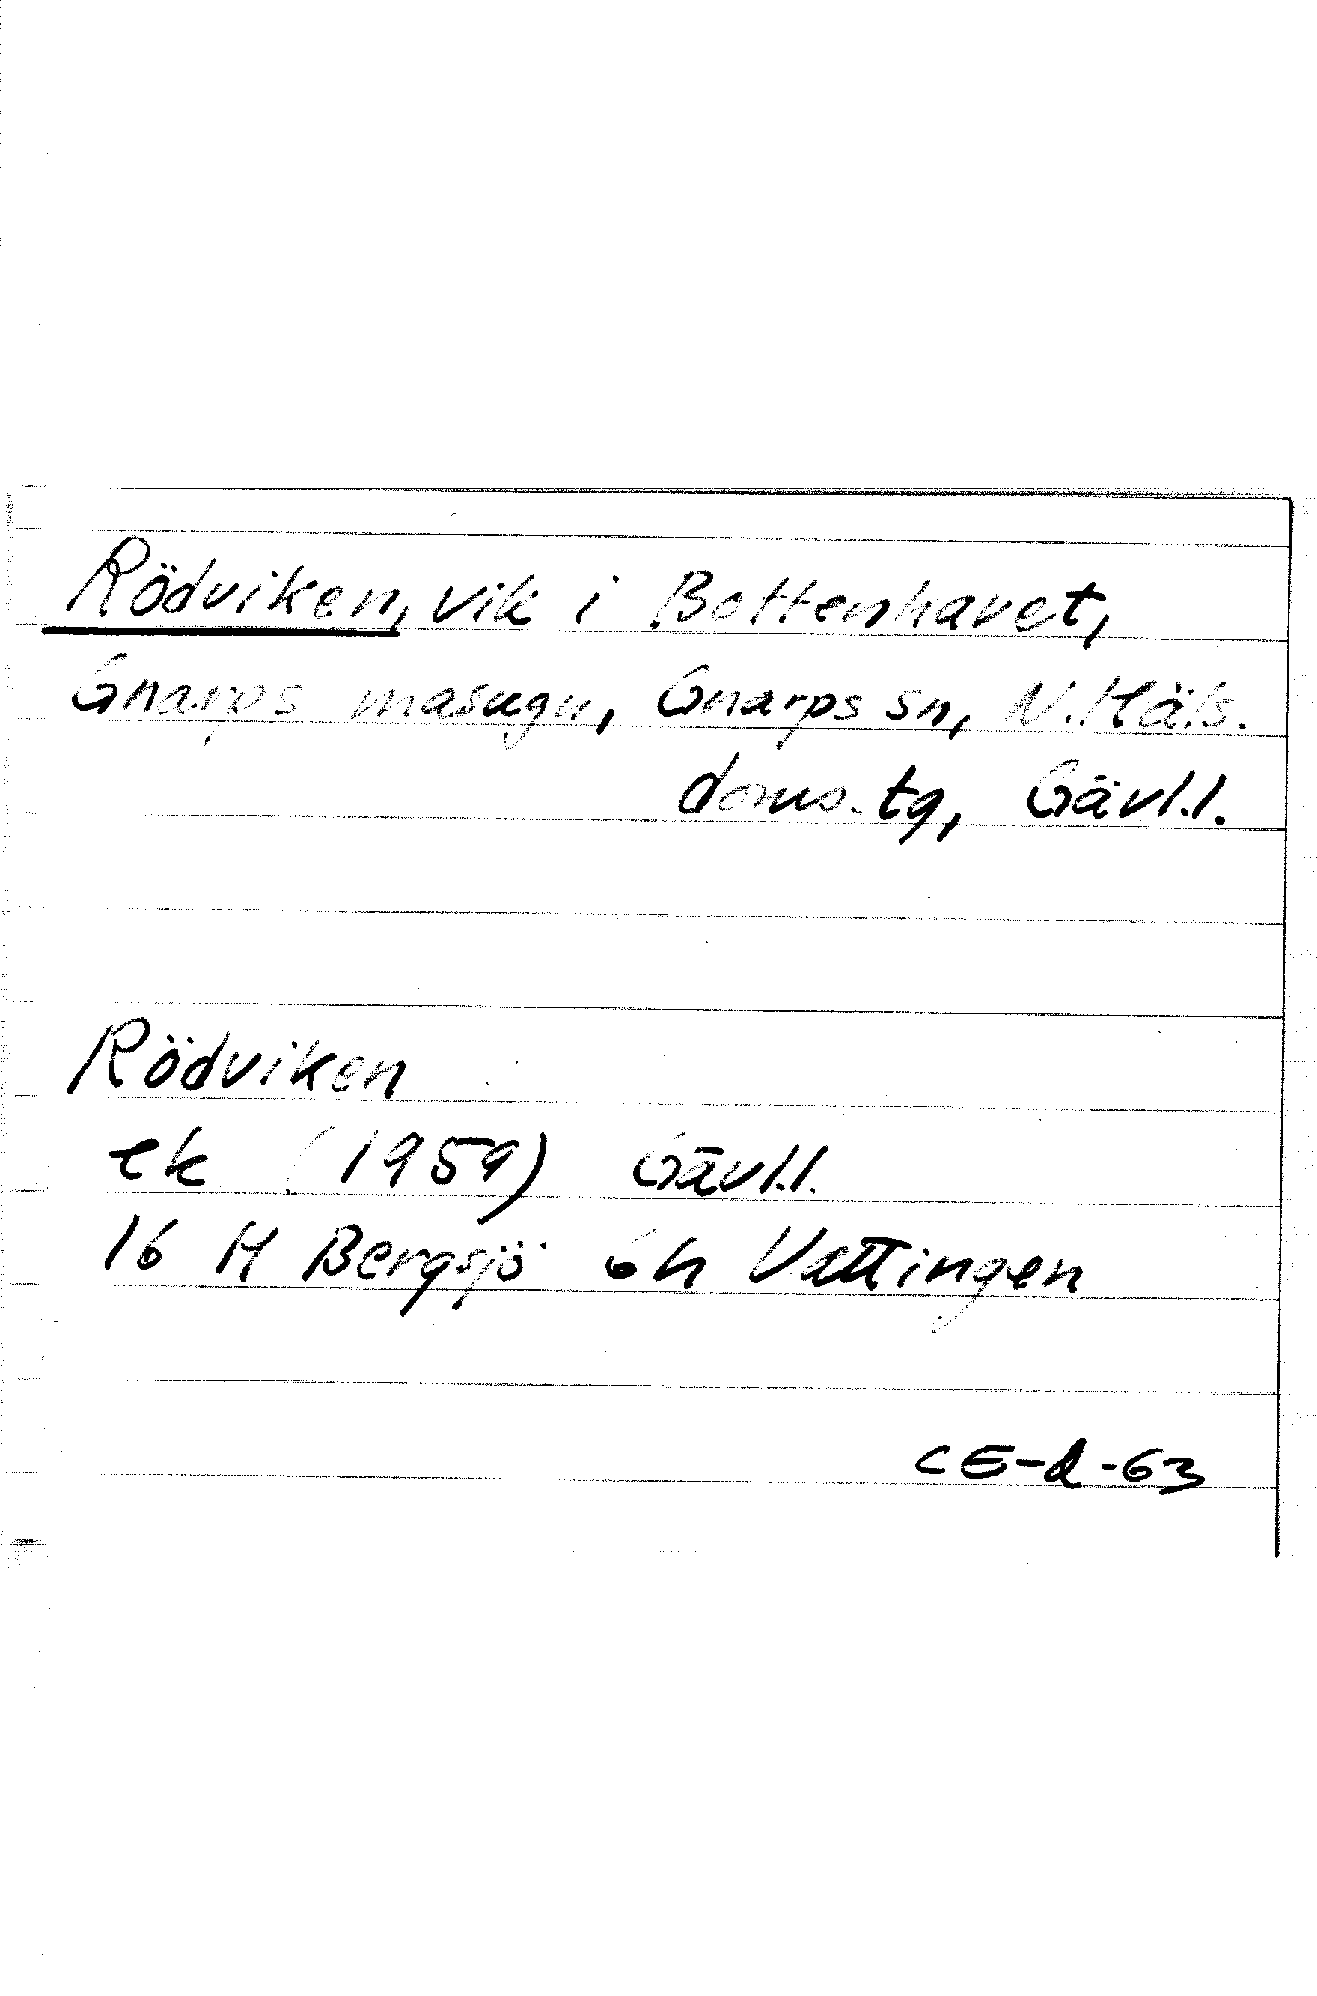 Rödviken, vik i Bottenhavet,
Gnarps masugn, Gnarps sn, N.Häls.
doms.tg, Gävl.l.
Rödviken
ek (1959) Gävl.l.
16 H Bergsjö 6h Vattingen
CE-d-63